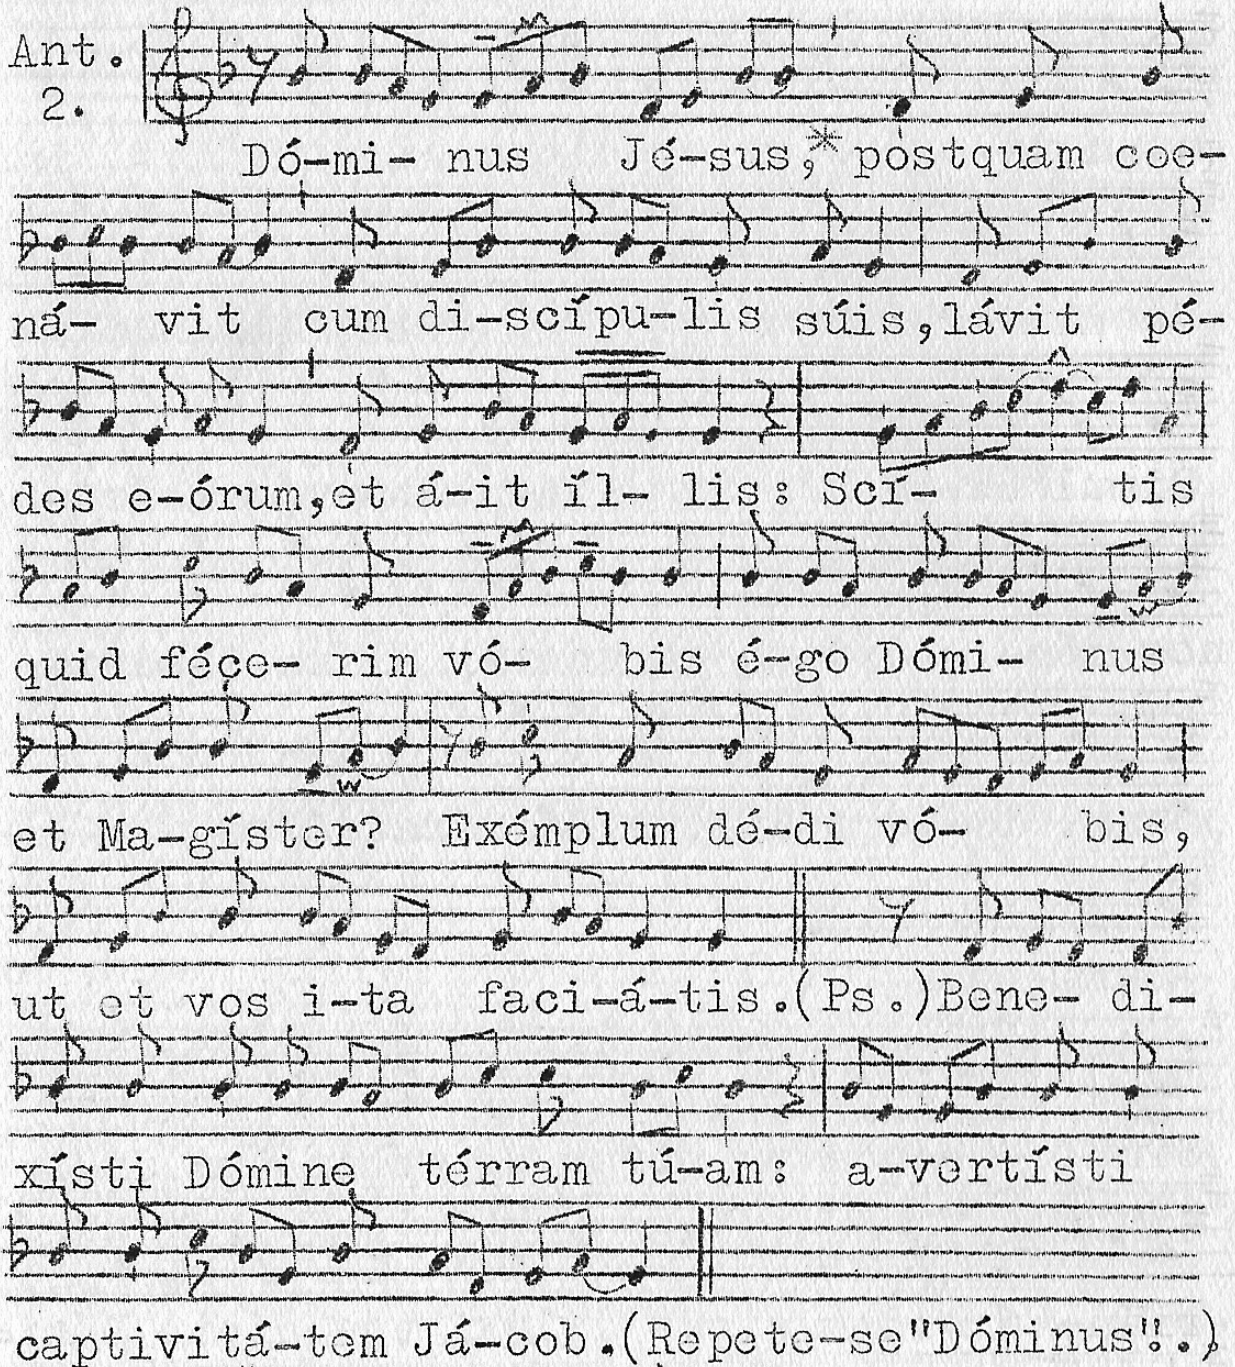 Ant.
2.
Dó-mi- nus Jé-sus,* póstquam coe-
ná- vit cum di-scípu-lis súis,lávit pé-
des e-órum,et á-it íl- lis: Scí- tis
quid féce- rim vó- bis é-go Dómi- nus
et Ma-gíster? Exémplum dé-di vó- bis,
ut et vos i-ta faci-á-tis.(Ps.)Bene- di-
xísti Dómine térram tú-am: a-vertísti
captivitá-tem Já-cob.(Repete-se"Dóminus".)